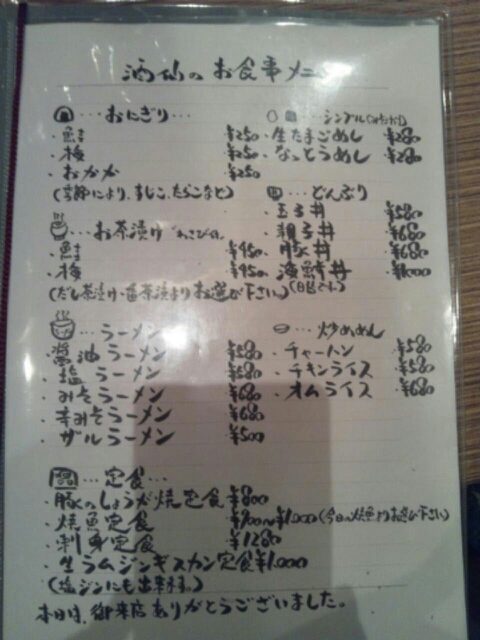 酒仙のお食事メニュー
…おにぎり…
・鮭 ¥250
・梅 ¥250
・おかか ¥250
(季節により、すじこ、たらこなど)
…お茶漬け
・鮭 ¥450
・梅 ¥450
(だし茶漬け・番茶漬よりお選び下さい)
…ラーメン
・醤油ラーメン ¥580
・塩ラーメン ¥580
・みそラーメン ¥680
・辛みそラーメン ¥680
・ザルラーメン ¥500
…シンプル
・生たまごめし ¥280
・なっとうめし ¥280
…どんぶり
・玉子丼 ¥580
・親子丼 ¥680
・豚丼 ¥680
・海鮮丼 ¥1,000
…炒めめし
・チャーハン ¥580
・チキンライス ¥580
・オムライス ¥680
…定食…
・豚のしょうが焼定食 ¥800
・焼魚定食 ¥900〜¥1,000(今日の焼魚よりお選び下さい)
・刺身定食 ¥1280
・生ラムジンギスカン定食 ¥1,000
(塩ジンにも出来ます。)
本日は、御来店ありがとうございました。